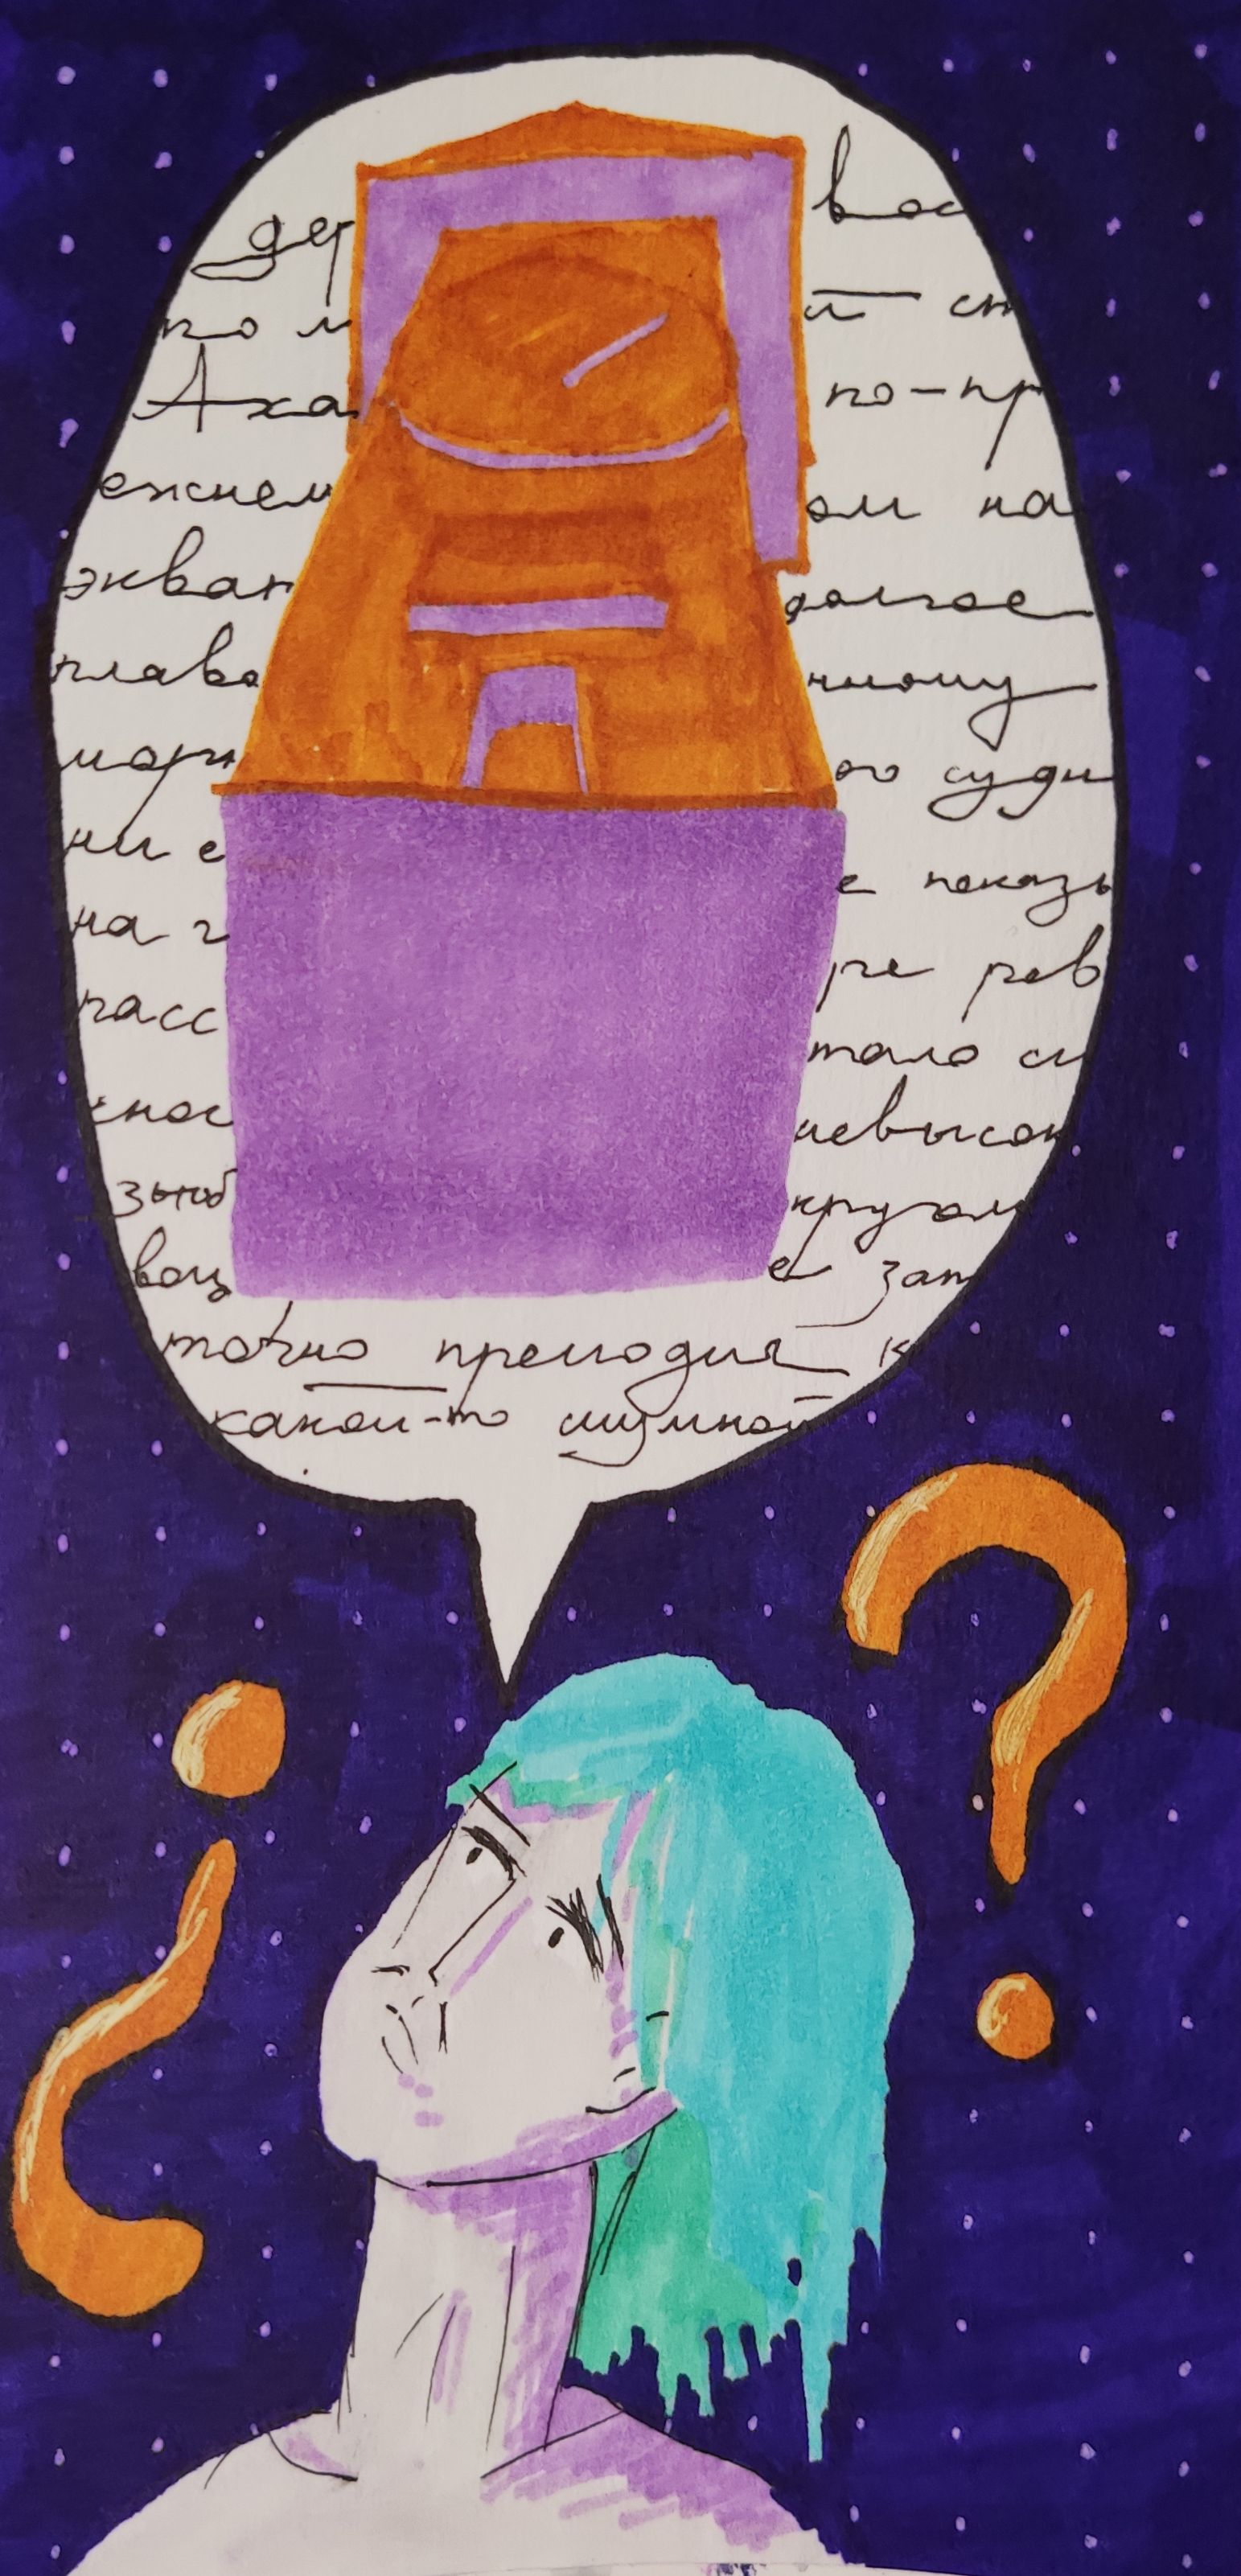 дер вос
по м й ст
Аха по-пр
ежнем ом на
экват долгое
плава нному
мор го суди
ни с е показы
на г ре рев
расс тало си
снос невысок
зыб кругом
вощ е зат
точно прелюдия к
какой-то шумной